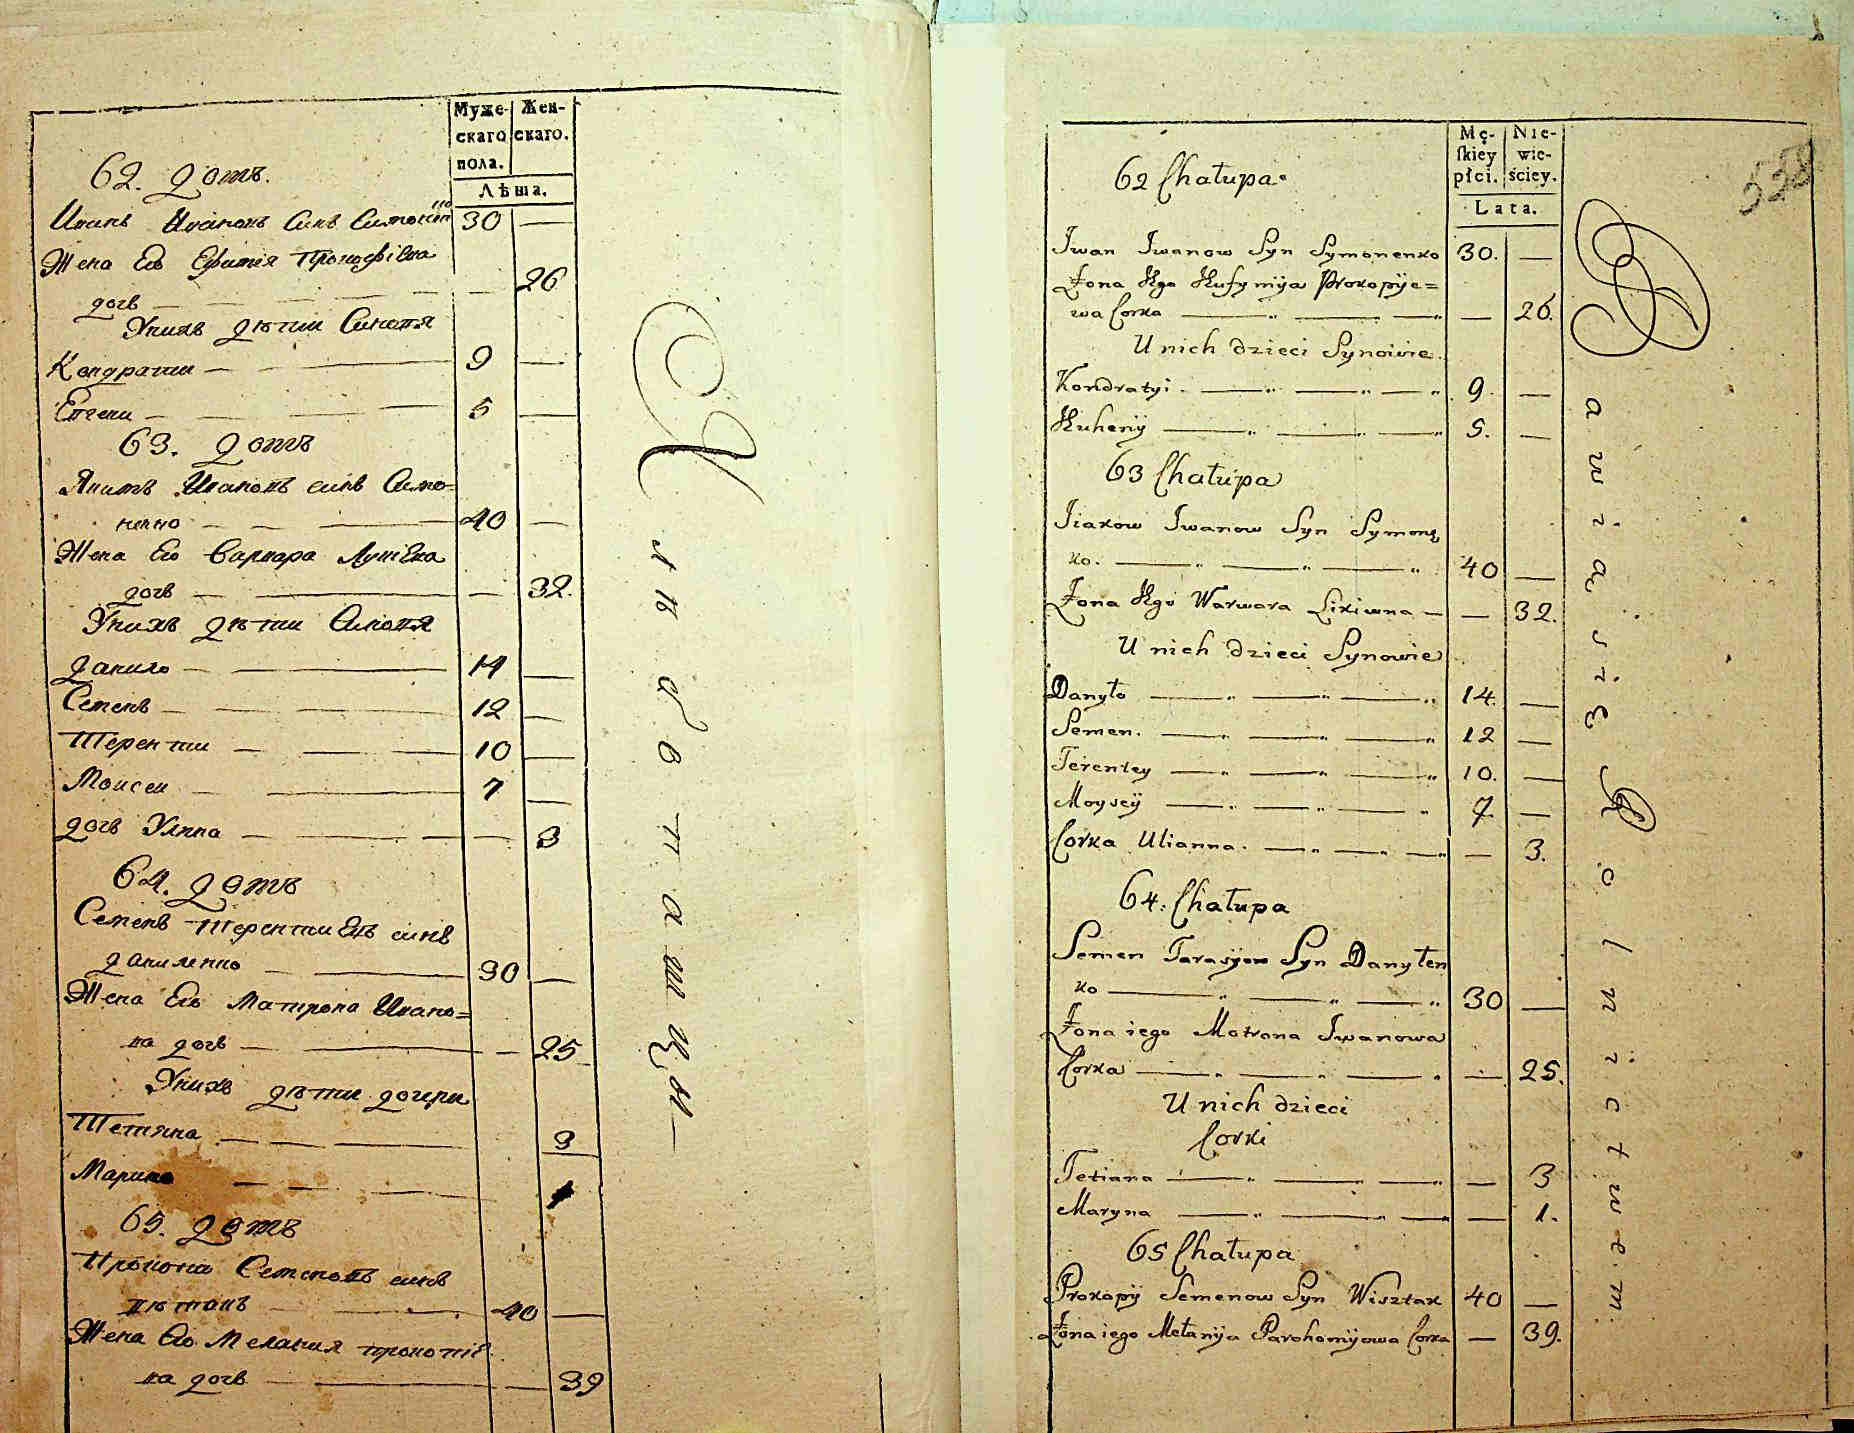 Муже-
скаго
пола.
Жен-
скаго.
Лѣта.
62. Домъ.
Иванъ Ивановъ синъ Симоненко 30 —
Жена Его Ефимія Прокофіева
дочь — 26
У нихъ дѣти Синовя
Кондратии — 9 —
Евгени — 5 —
63. Домъ
Якимъ Ивановъ синъ Симо=
ненко — 40 —
Жена Его Варвара Лукіева
дочь — 32.
У нихъ дѣти Синовя
Данило — 14 —
Семенъ — 12 —
Терентии — 10 —
Моисеи — 7 —
дочь Уляна — 3
64. Домъ
Семенъ Терентиевъ синъ
Даниленко — 30 —
Жена Его Матрона Ивано=
ва дочь — 25
У нихъ дѣти дочери
Тетяна — 3
Марина — 1
65. Домъ
Прокопи Семеновъ синъ
40 —
Жена Его Мелания прокопіе
ва дочь — 39
Хлѣбопашцы
Mę-
skiey
płci.
Nie-
wie-
ściey.
Lata.
558
62 Chałupa
Iwan Iwanow Syn Symonenko 30. —
Żona Jego Jeufymija Prokopije=
wa Corka — 26.
U nich dzieci Synowie
Kondratyi — 9. —
Jeuhenij — 5. —
63 Chałupa
Jiakow Iwanow Syn Symonę
ko. — 40 —
Żona Jego Warwara Likiwna — 32.
U nich dzieci Synowie
Danyło — 14. —
Semen. — 12 —
Terentey — 10. —
Moysey — 7. —
Corka Ulianna. — 3.
64. Chałupa
Semen Tarasijow Syn Danyłen
ko — 30 —
Żona iego Motrona Iwanowa
Corka — 25.
U nich dzieci
Corki
Tetiana — 3
Maryna — 1.
65 Chałupa
Prokopij Semenow Syn Wisztak 40 —
Żona iego Mełanija Parchomijowa Corka — 39.
Bawią się Rolnictwem.